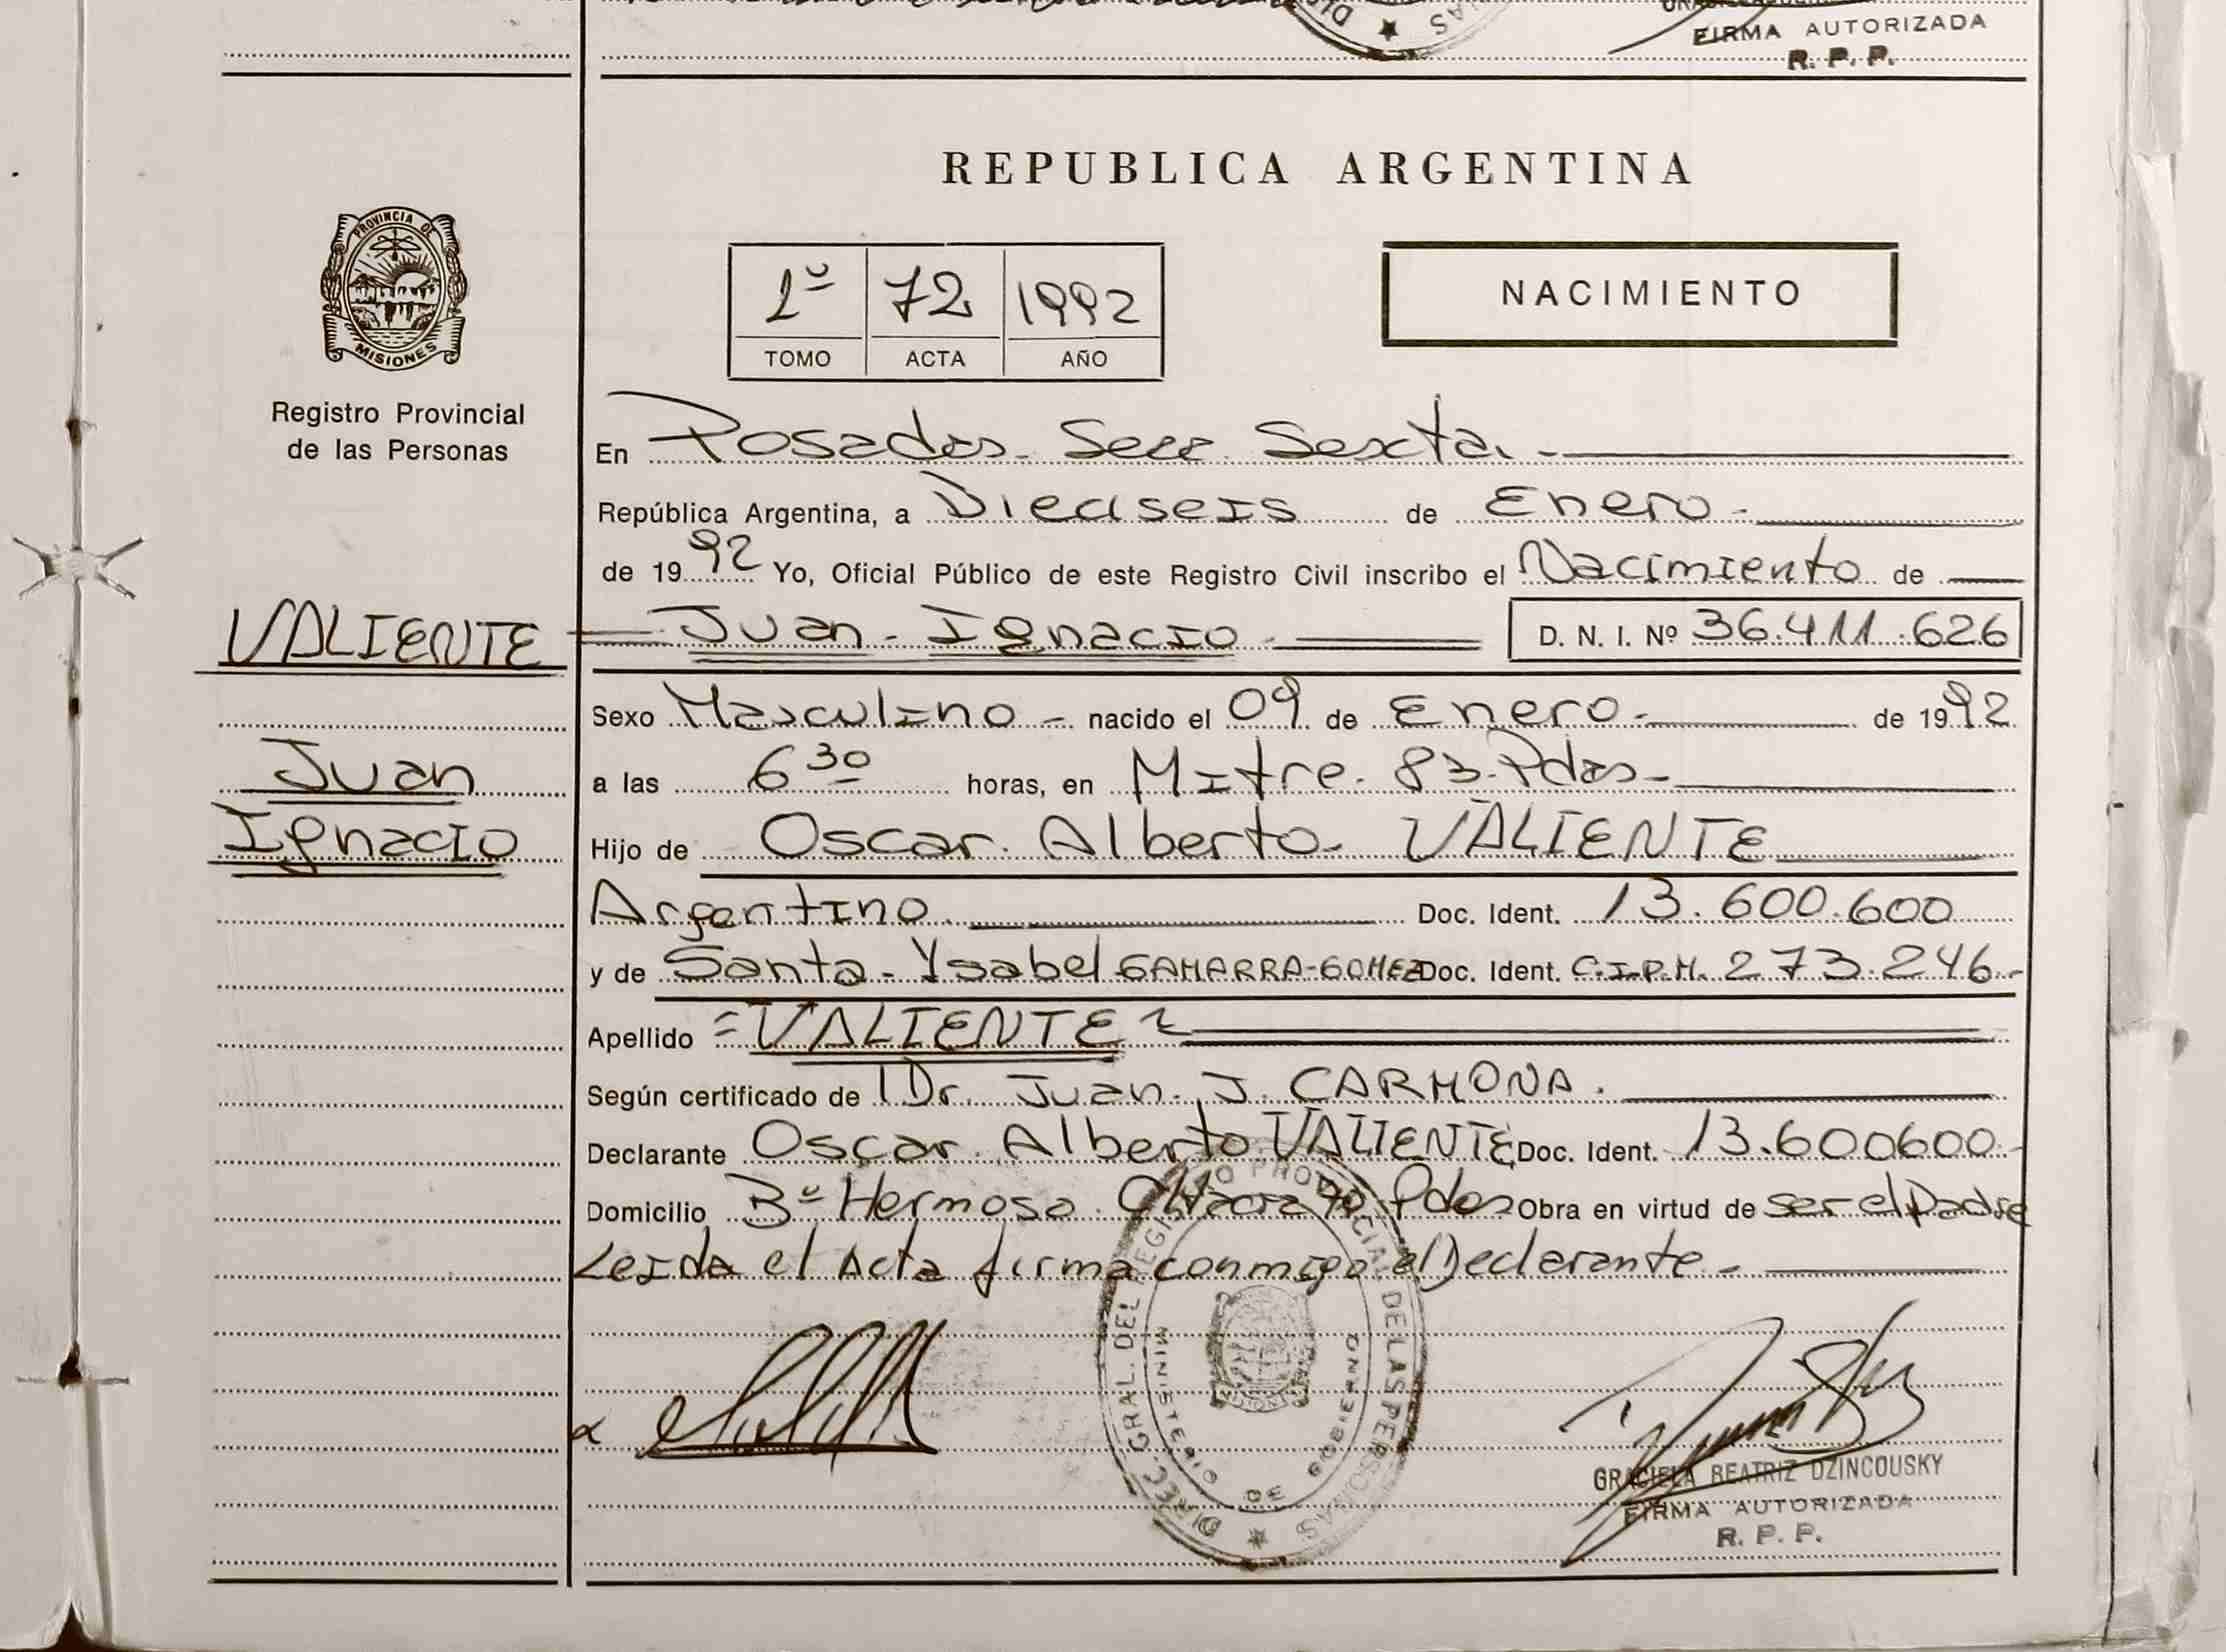 FIRMA AUTORIZADA
R. P. P.
REPUBLICA ARGENTINA
PROVINCIA DE
MISIONES
Registro Provincial
de las Personas
1º 72 1992
TOMO ACTA AÑO
NACIMIENTO
En Posadas - Secc. Sexta. -
República Argentina, a Dieciseis de Enero -
de 1992 Yo, Oficial Público de este Registro Civil inscribo el Nacimiento de
VALIENTE Juan - Ignacio - D. N. I. Nº 36.411.626
Sexo Masculino - nacido el 09 de Enero - de 1992
Juan
a las 6 30 horas, en Mitre. 83. Pdas -
Ignacio
Hijo de Oscar Alberto - VALIENTE
Argentino. Doc. Ident. 13.600.600
y de Santa - Ysabel GAMARRA-GOMEZ Doc. Ident. C.I.P.M. 273.246 -
Apellido =VALIENTE
Según certificado de Dr. Juan. J. CARMONA.
Declarante Oscar Alberto VALIENTE Doc. Ident. 13.600600 -
Domicilio Bº Hermoso Pdas Obra en virtud de ser el Padre
Leida el Acta firma conmigo el Declarante -
DIREC. GRAL. DEL REGISTRO PROVINCIAL DE LAS PERSONAS
MINISTERIO DE GOBIERNO
GRACIELA BEATRIZ DZINCOUSKY
FIRMA AUTORIZADA
R. P. P.